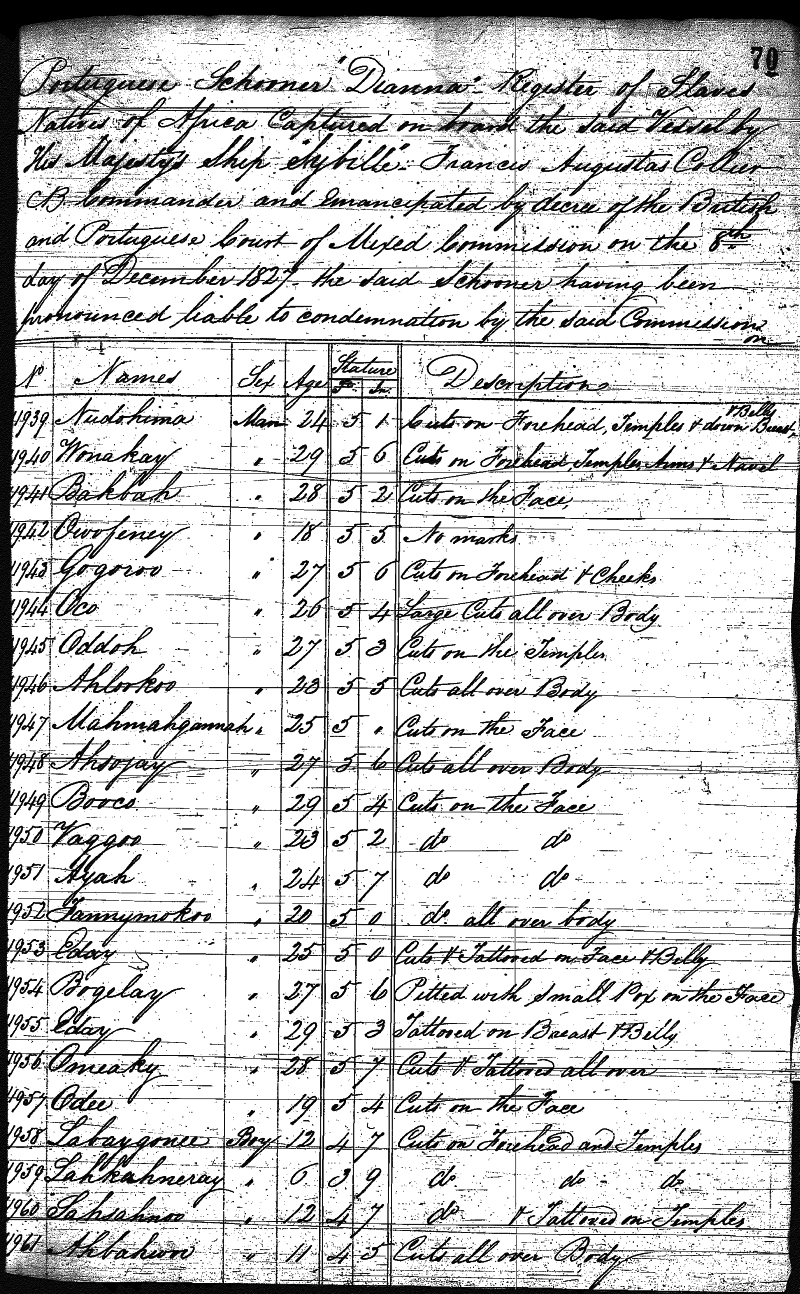 70
Portuguese Schooner "Dianna" Register of Slaves
Natives of Africa Captured on board the said Vessel by
His Majesty's Ship "Sybille" Francis Augustus Collier
CB Commander and Emancipated by decree of the British
and Portuguese Court of Mixed Commission on the 8th
day of December 1827 - the said Schooner having been
pronounced liable to condemnation by the said Commission
on
No Names Sex Age Stature Ft. In. Description
11939 Nudohima Man 24 5 1 Cuts on Forehead, Temples & down Breast, & Belly
11940 Wonakay " 29 5 6 Cuts on Forehead Temples Arms & Navel
11941 Bakbah " 28 5 2 Cuts on the Face,
11942 Owofeney " 18 5 5 No marks
11943 Gogoroo " 27 5 6 Cuts on Forehead & Cheeks
11944 Oco " 26 5 4 Large Cuts all over Body
11945 Oddoh " 27 5 3 Cuts on the Temples
11946 Ahlookoo " 23 5 5 Cuts all over Body
11947 Mahmahgannah " 25 5 " Cuts on the Face
11948 Ahsojay " 27 5 6 Cuts all over Body
11949 Booco " 29 5 4 Cuts on the Face
11950 Vaggoo " 23 5 2 do do
11951 Ayah " 24 5 7 do do
11952 Fannymokoo " 20 5 0 do all over body
11953 Eday " 25 5 0 Cuts & Tattooed on Face & Belly
11954 Bogelay " 27 5 6 Pitted with Small Pox on the Face
11955 Eday " 29 5 3 Tattooed on Breast & Belly
11956 Omeaky " 28 5 7 Cuts & Tattooed all over
11957 Odee " 19 5 4 Cuts on the Face
11958 Labaygonee Boy 12 4 7 Cuts on Forehead and Temples
11959 Lahkahneray " 6 3 9 do do do
11960 Sahsahnoo " 12 4 7 do & Tattooed on Temples
11961 Ahbahwoo " 11 4 5 Cuts all over Body